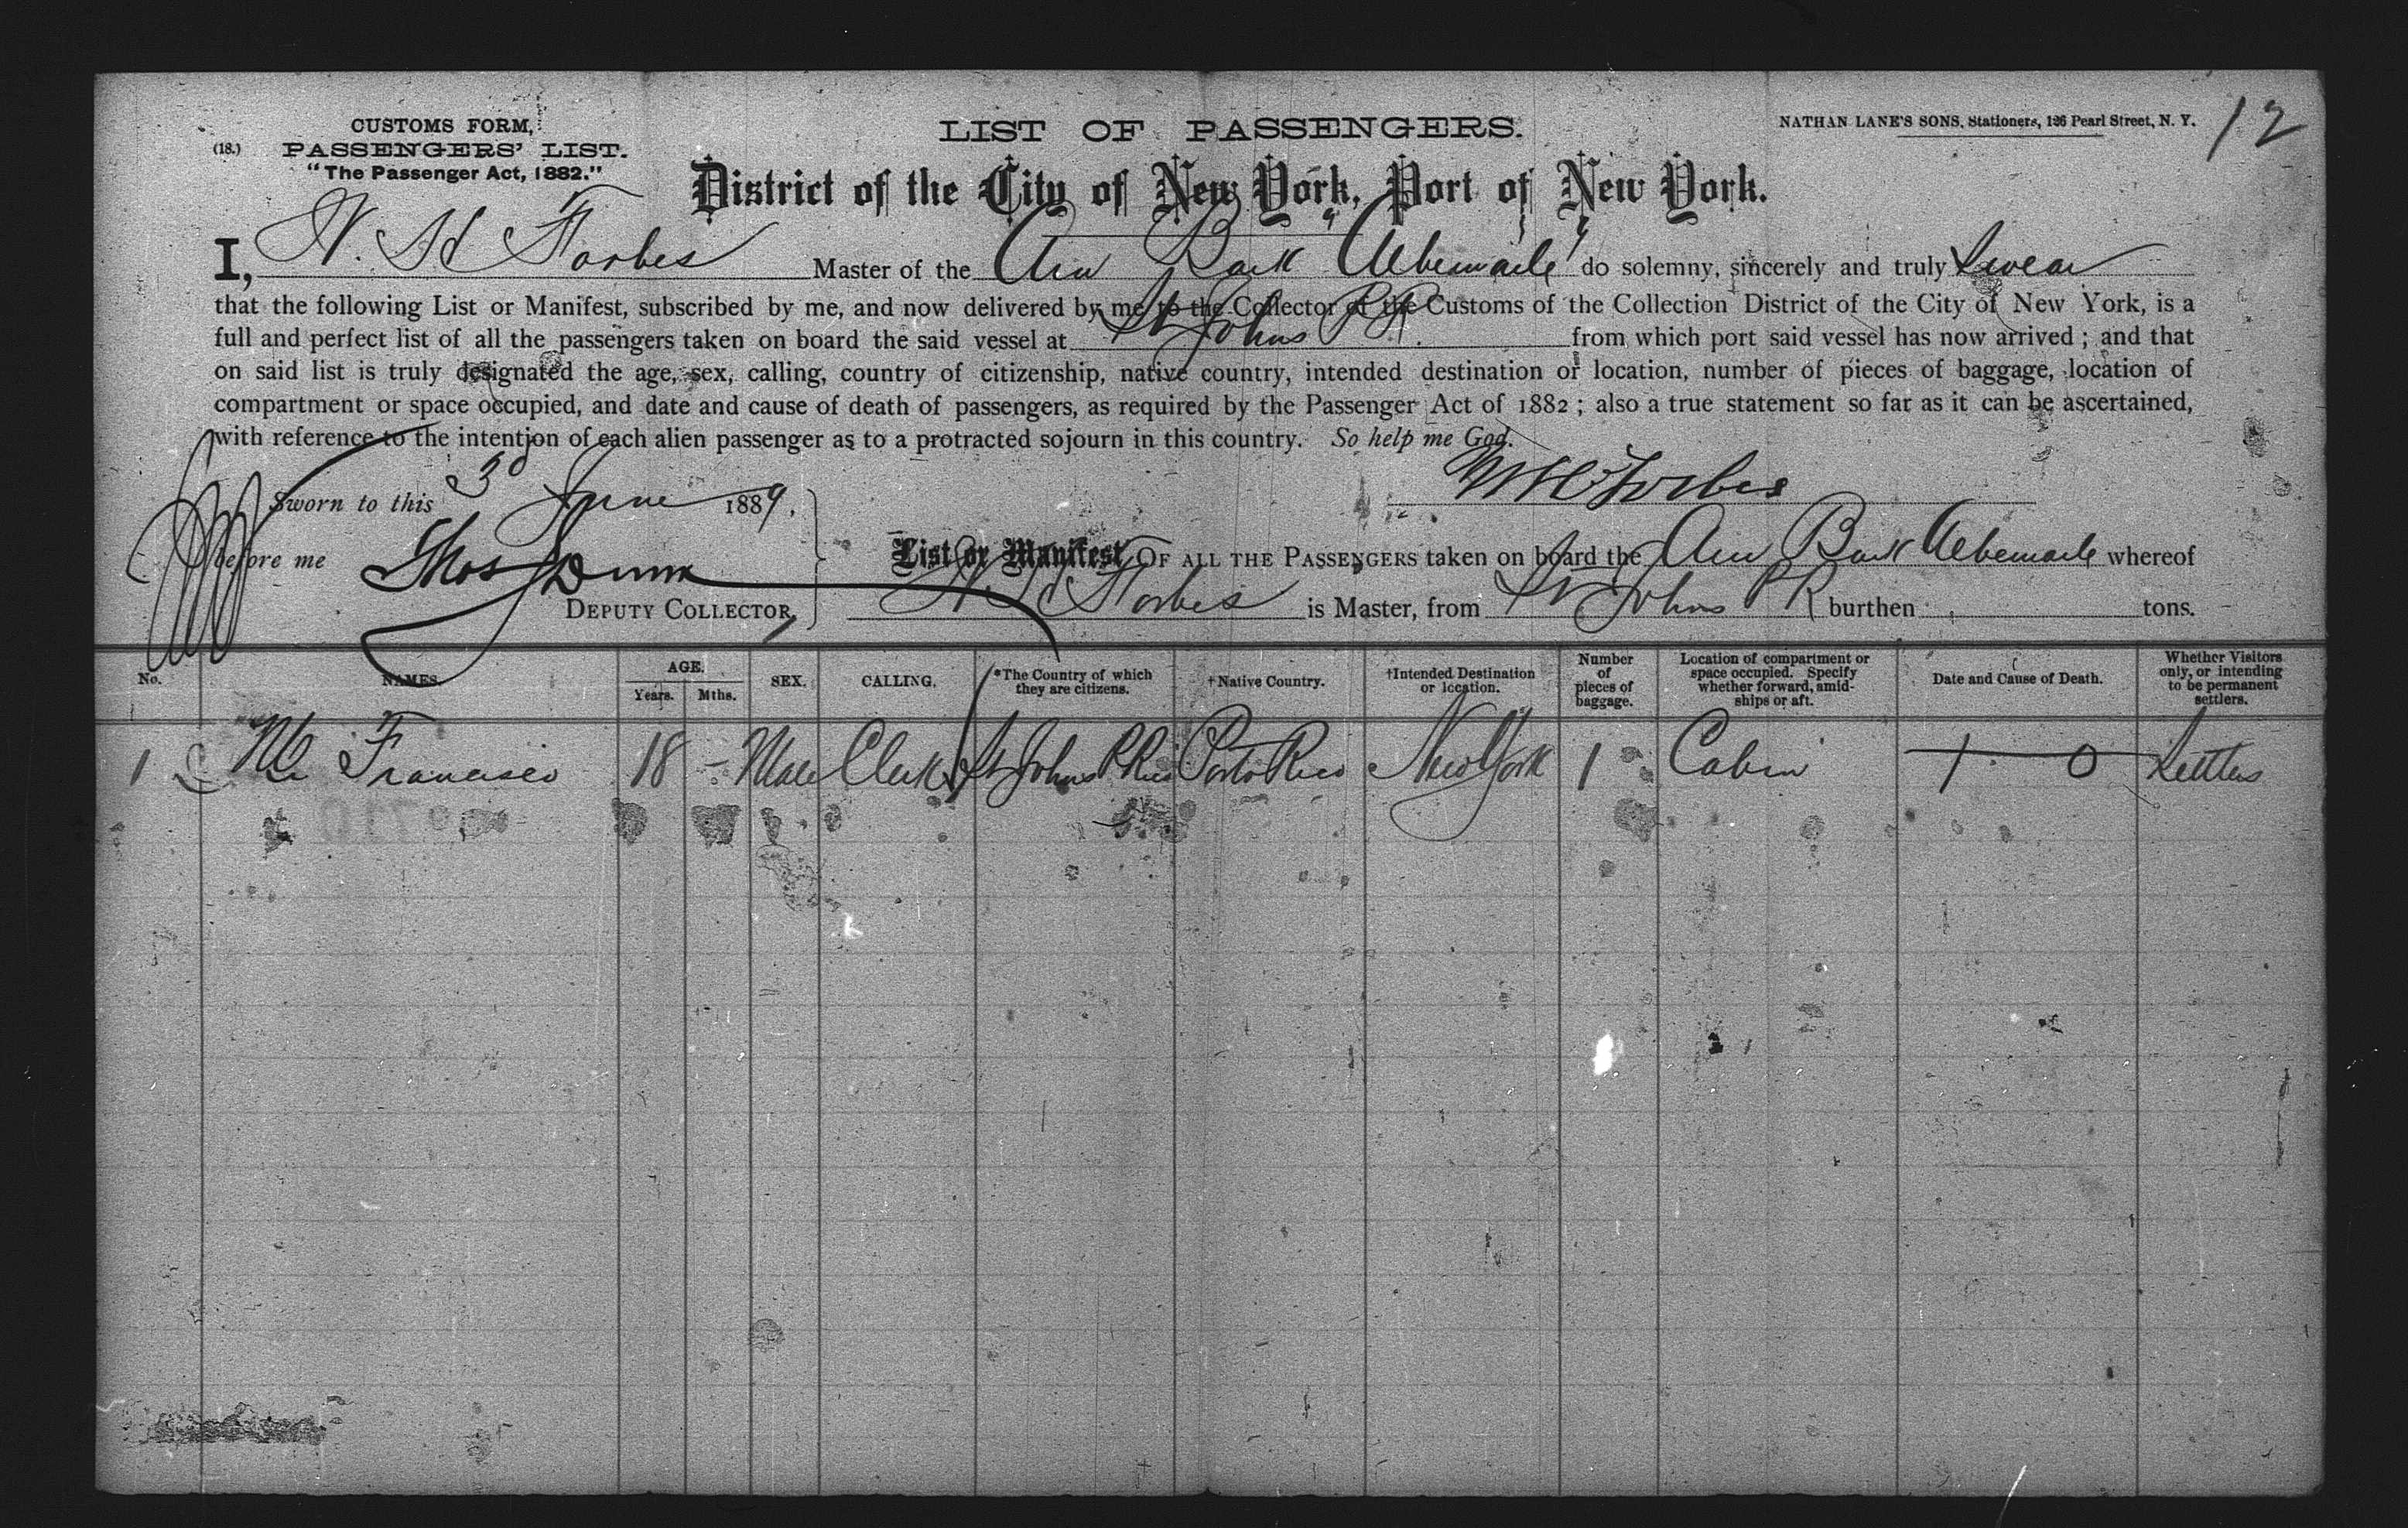 12
CUSTOMS FORM,
(18.) PASSENGERS' LIST.
"The Passenger Act, 1882."
LIST OF PASSENGERS.
NATHAN LANE'S SONS, Stationers, 126 Pearl Street, N. Y.
District of the City of New York, Port of New York.
I, Forbes Master of the Am Bark "Albemarle" do solemny, sincerely and truly Swear
that the following List or Manifest, subscribed by me, and now delivered by me to the Collector of the Customs of the Collection District of the City of New York, is a
full and perfect list of all the passengers taken on board the said vessel at St Johns P.R. from which port said vessel has now arrived ; and that
on said list is truly designated the age, sex, calling, country of citizenship, native country, intended destination or location, number of pieces of baggage, location of
compartment or space occupied, and date and cause of death of passengers, as required by the Passenger Act of 1882 ; also a true statement so far as it can be ascertained,
with reference to the intention of each alien passenger as to a protracted sojourn in this country. So help me God.
Forbes
Sworn to this 3d June 1889,
before me Thos Dunn
DEPUTY COLLECTOR,
List or Manifest OF ALL THE PASSENGERS taken on board the Am Bark Albemarle whereof
Forbes is Master, from St Johns PR burthen tons.
No. NAMES. AGE. Years. Mths. SEX. CALLING. *The Country of which they are citizens. †Native Country. †Intended Destination or location. Number of pieces of baggage. Location of compartment or space occupied. Specify whether forward, amidships or aft. Date and Cause of Death. Whether Visitors only, or intending to be permanent settlers.
1 Francisco 18 - Male Clerk St Johns P Rico Porto Rico New York 1 Cabin Settlers